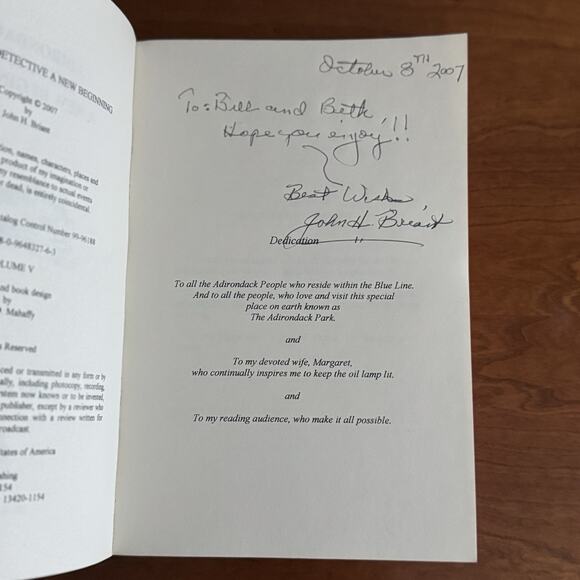 DETECTIVE A NEW BEGINNING
Copyright © 2007
by
John H. Briant
tion, names, characters, places and
product of my imagination or
ny resemblance to actual events
r dead, is entirely coincidental.
talog Control Number 99-96188
8-0-9648327-6-3
LUME V
nd book design
by
D. Mahaffy
s Reserved
ced or transmitted in any form or by
ally, including photocopy, recording,
stem now known or to be invented,
publisher, except by a reviewer who
nnection with a review written for
roadcast.
tates of America
shing
154
13420-1154
October 8TH 2007
To: Bill and Beth,
Hope you enjoy!!
Best Wishes,
John H. Briant
Dedication
To all the Adirondack People who reside within the Blue Line.
And to all the people, who love and visit this special
place on earth known as
The Adirondack Park.
and
To my devoted wife, Margaret,
who continually inspires me to keep the oil lamp lit.
and
To my reading audience, who make it all possible.